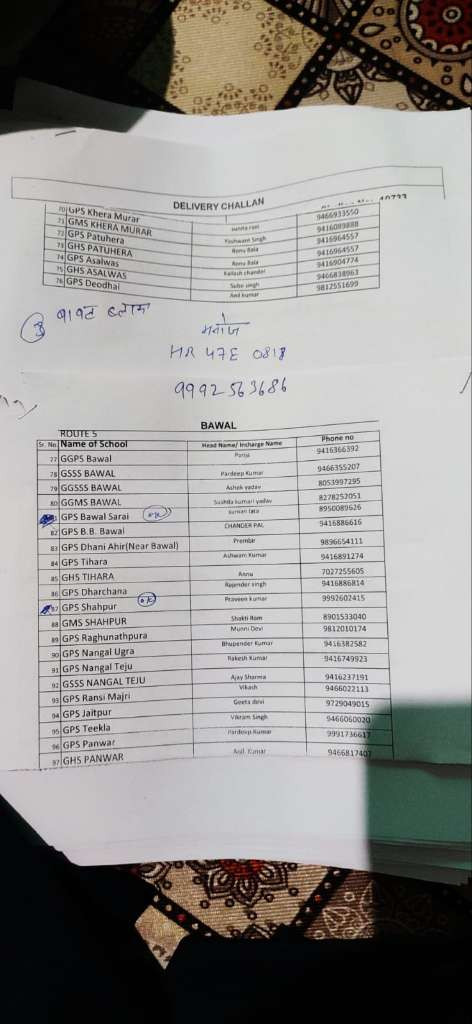 DELIVERY CHALLAN
70 GPS Khera Murar 9466933550
71 GMS KHERA MURAR 9416089888
72 GPS Patuhera Yashwant Singh 9416964557
73 GHS PATUHERA Renu Bala 9416964557
74 GPS Asalwas Renu Bala 9416904774
75 GHS ASALWAS Kailash chander 9466838963
76 GPS Deodhai Sube singh 9812551699
Anil kumar
3 बावल ब्लाक
मनोज
HR 47E 0818
9992563686
BAWAL
ROUTE 5
Sr. No. Name of School Head Name/ Incharge Name Phone no
77 GGPS Bawal 9416366392
78 GSSS BAWAL Pardeep Kumar 9466355207
79 GGSSS BAWAL Ashok yadav 8053997295
80 GGMS BAWAL Sushila kumari yadav 8278252051
81 GPS Bawal Sarai ok suman lata 8950089626
82 GPS B.B. Bawal CHANDER PAL 9416886616
83 GPS Dhani Ahir(Near Bawal) Prembir 9896654111
84 GPS Tihara Ashwani Kumar 9416891274
85 GHS TIHARA Annu 7027255605
86 GPS Dharchana Rajender singh 9416886814
87 GPS Shahpur ok Praveen kumar 9992602415
88 GMS SHAHPUR Shakti Ram 8901533040
89 GPS Raghunathpura Munni Devi 9812010174
90 GPS Nangal Ugra Bhupender Kumar 9416382582
91 GPS Nangal Teju Rakesh Kumar 9416749923
92 GSSS NANGAL TEJU Ajay Sharma 9416237191
93 GPS Ransi Majri Vikash 9466022113
94 GPS Jaitpur Geeta devi 9729049015
95 GPS Teekla Vikram Singh 9466060020
96 GPS Panwar Pardeep Kumar 9991736617
97 GHS PANWAR Anil Kumar 9466817407